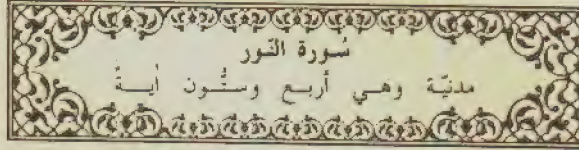 سُورة النّور
مدنيّة وهي أربع وستُّون أيةً